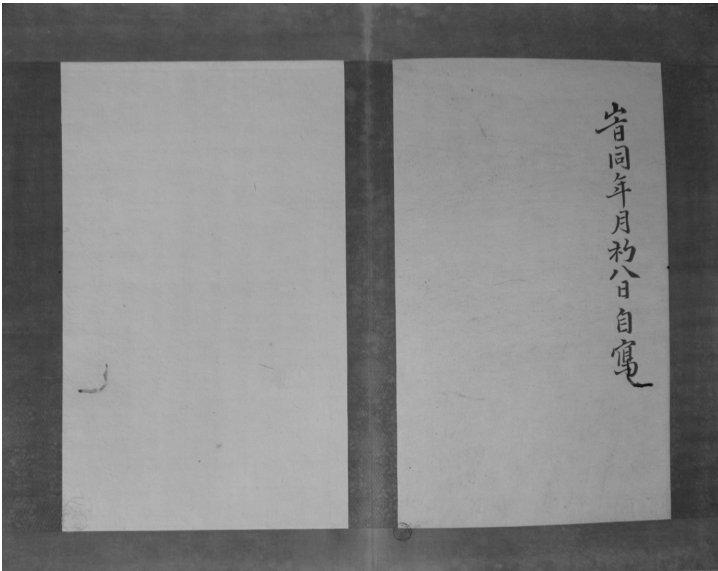 旹同年月初八日自寫